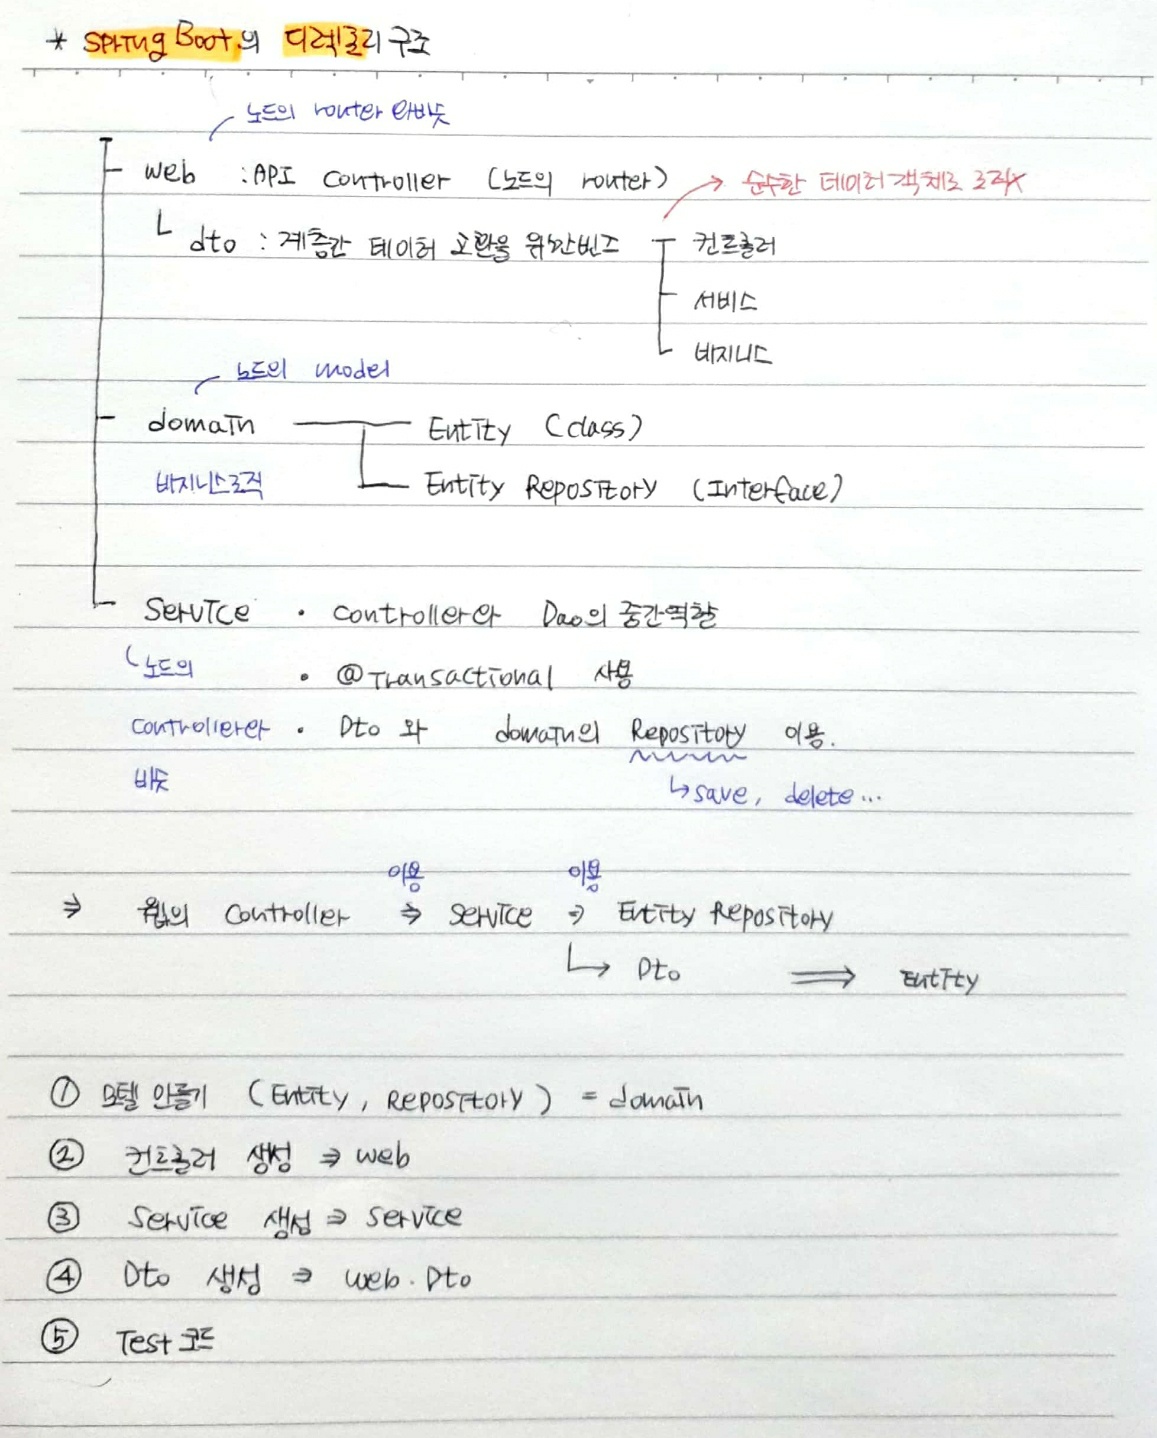 * Spring Boot의 디렉토리 구조
노드의 router와 비슷
web : API Controller (노드의 router) → 순수한 데이터 객체로 로직X
dto : 계층간 데이터 교환을 위한 빈즈 컨트롤러
서비스
비지니스
노드의 model
domain Entity (class)
비지니스로직 Entity Repository (Interface)
Service · Controller와 Dao의 중간역할
노드의 · @Transactional 사용
Controller와 · Dto 와 domain의 Repository 이용.
비슷 ↳ save, delete...
이용 이용
⇒ 웹의 Controller ⇒ Service ⇒ Entity Repository
↳ Dto ⇒ Entity
① 모델 만들기 (Entity, Repository) = domain
② 컨트롤러 생성 ⇒ web
③ Service 생성 ⇒ Service
④ Dto 생성 ⇒ web.Dto
⑤ Test 코드